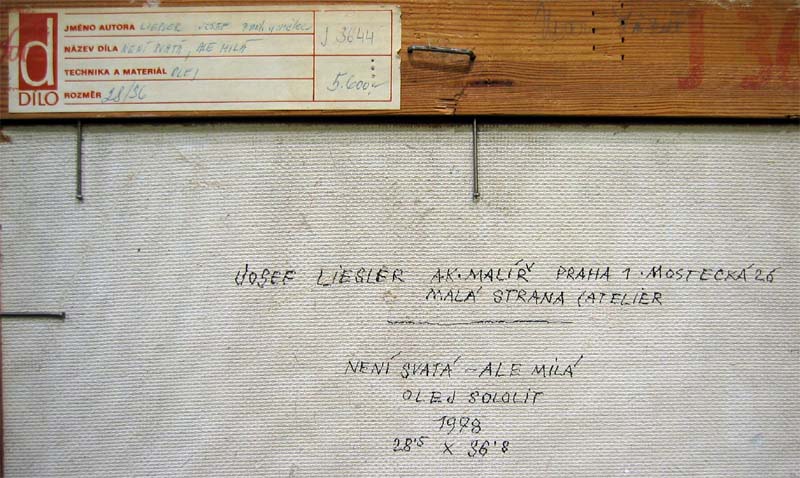 d
DÍLO
JMÉNO AUTORA LIESLER JOSEF
NÁZEV DÍLA NENÍ SVATÁ, ALE MILÁ
TECHNIKA A MATERIÁL OLEJ
ROZMĚR 28/36
J 3644
5.600,-
JOSEF LIESLER AK. MALÍŘ PRAHA 1. MOSTECKÁ 26
MALÁ STRANA (ATELIER
NENÍ SVATÁ - ALE MILÁ
OLEJ SOLOLIT
1978
28'5 X 36'8